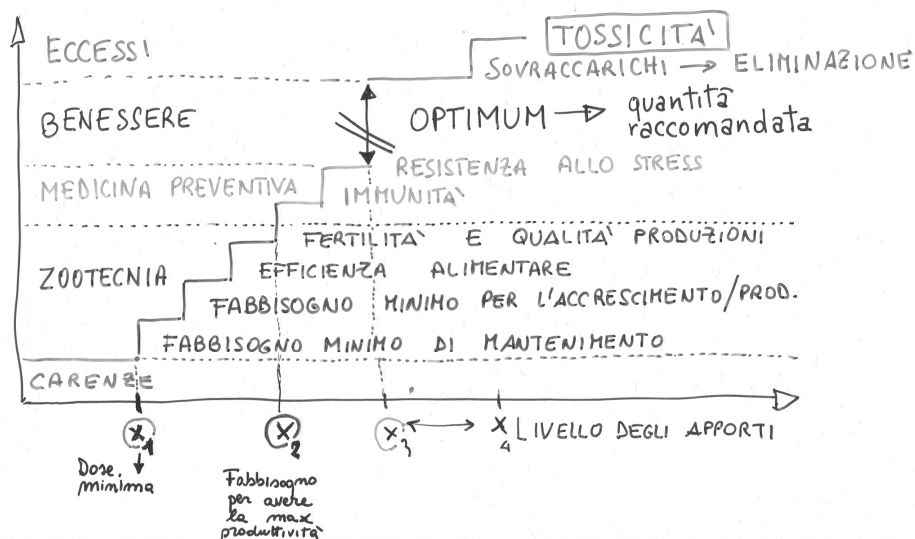 ECCESSI
TOSSICITA'
SOVRACCARICHI → ELIMINAZIONE
BENESSERE
OPTIMUM → quantità
raccomandata
RESISTENZA ALLO STRESS
MEDICINA PREVENTIVA
IMMUNITA'
FERTILITA' E QUALITA' PRODUZIONI
ZOOTECNIA
EFFICIENZA ALIMENTARE
FABBISOGNO MINIMO PER L'ACCRESCIMENTO/PROD.
FABBISOGNO MINIMO DI MANTENIMENTO
CARENZE
X1
X2
X3 ↔ X4
LIVELLO DEGLI APPORTI
Dose
minima
Fabbisogno
per avere
la max
produttività